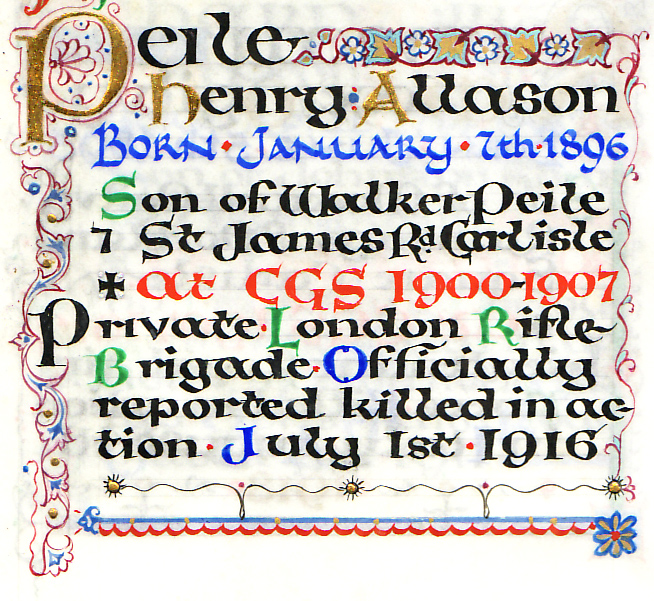 Peile
Henry: Allason
Born · January · 7th · 1896
Son of Walker Peile
7 St James Rd Carlisle
✠ at CGS 1900-1907
Private · London Rifle
Brigade · Officially
reported killed in ac-
tion · July 1st · 1916